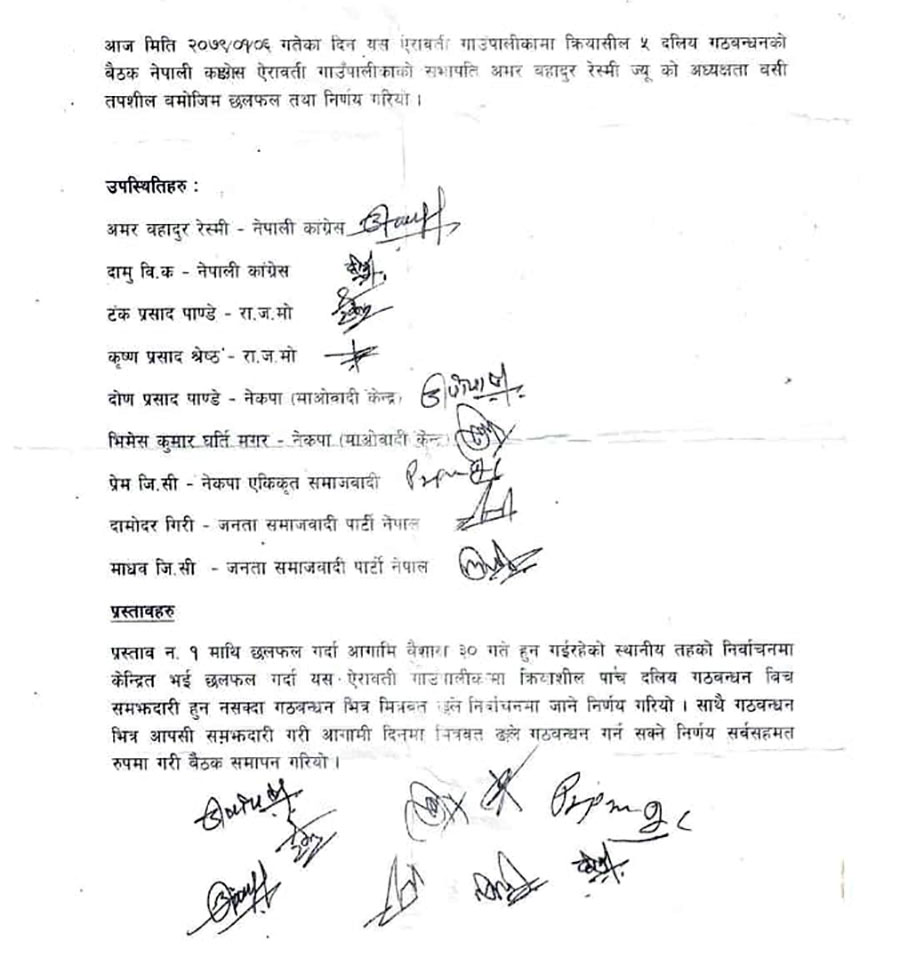 आज मिति २०७९/०१/०६ गतेका दिन यस ऐरावती गाउँपालीकामा क्रियासील ५ दलिय गठबन्धनको
बैठक नेपाली कङ्ग्रेस ऐरावर्ती गाउँपालीकाको सभापति अमर बहादुर रेस्मी ज्यू को अध्यक्षता वसी
तपशील वमोजिम छलफल तथा निर्णय गरियो ।
उपस्थितिहरु :
अमर बहादुर रेस्मी - नेपाली कांग्रेस
दामु वि.क - नेपाली कांग्रेस
टंक प्रसाद पाण्डे - रा.ज.मो
कृष्ण प्रसाद श्रेष्ठ - रा.ज.मो
दोण प्रसाद पाण्डे - नेकपा (माओवादी केन्द्र)
भिमेस कुमार घर्ति मगर - नेकपा (माओवादी केन्द्र)
प्रेम जि.सी - नेकपा एकिकृत समाजवादी
दामोदर गिरी - जनता समाजवादी पार्टी नेपाल
माधव जि.सी - जनता समाजवादी पार्टी नेपाल
प्रस्तावहरु
प्रस्ताव न. १ माथि छलफल गर्दा आगामि वैशाख ३० गते हुन गईरहेको स्थानीय तहको निर्वाचनमा
केन्द्रित भई छलफल गर्दा यस ऐरावती गाउँपालीकामा क्रियाशील पाचं दलिय गठबन्धन विच
समझदारी हुन नसक्दा गठबन्धन भित्र मित्रवत ढंगले निर्वाचनमा जाने निर्णय गरियो । साथै गठबन्धन
भित्र आपसी समझदारी गरी आगामी दिनमा मित्रवत ढंगले गठबन्धन गर्न सक्ने निर्णय सर्वसहमत
रुपमा गरी बैठक समापन गरियो ।